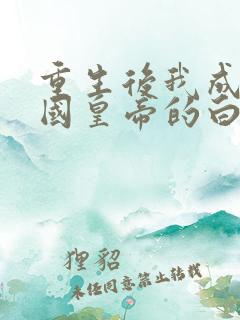 重生後我成
國皇帝的白
狸貂
未经同意禁止转载